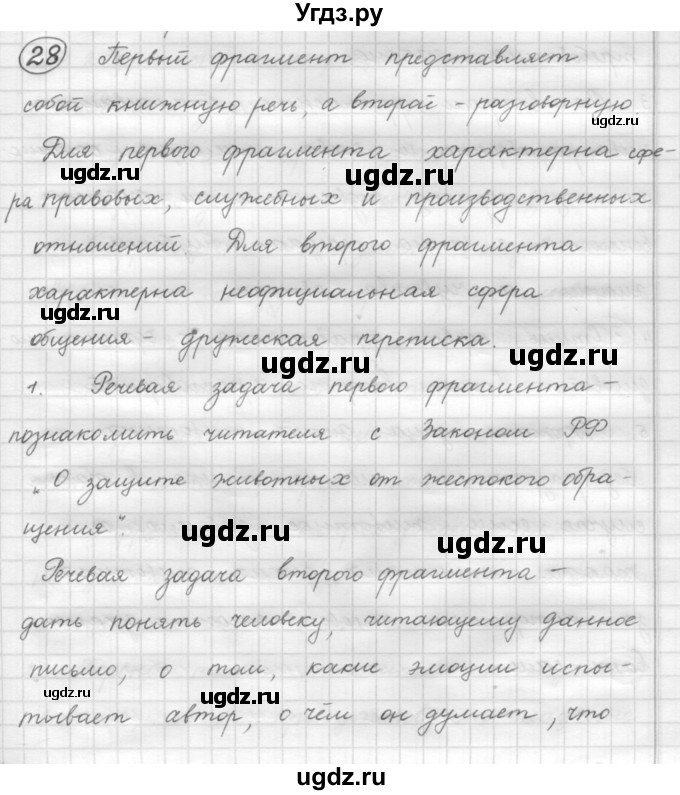 Угдз.ру
28 Первый фрагмент представляет
собой книжную речь, а второй - разговорную
ugdz.ru
Для первого фрагмента характерна сфе-
ugdz.ru ugdz.ru
ра правовых, служебных и производственных
отношений. Для второго фрагмента
характерна неофициальная сфера
ugdz.ru
общения - дружеская переписка.
ugdz.ru ugdz.ru
1. Речевая задача первого фрагмента -
познакомить читателя с Законом РФ
„О защите животных от жестокого обра-
щения".
ugdz.ru ugdz.ru
Речевая задача второго фрагмента -
дать понять человеку, читающему данное
письмо, о том, какие эмоции испы-
ugdz.ru ugdz.ru
тывает автор, о чём он думает, что
ugdz.ru